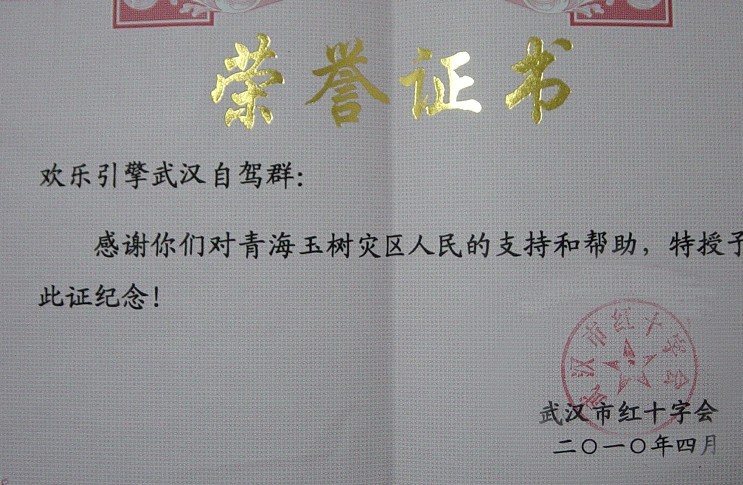 荣誉证书
欢乐引擎武汉自驾群：
感谢你们对青海玉树灾区人民的支持和帮助，特授予
此证纪念！
武汉市红十字会
武汉市红十字会
二〇一〇年四月